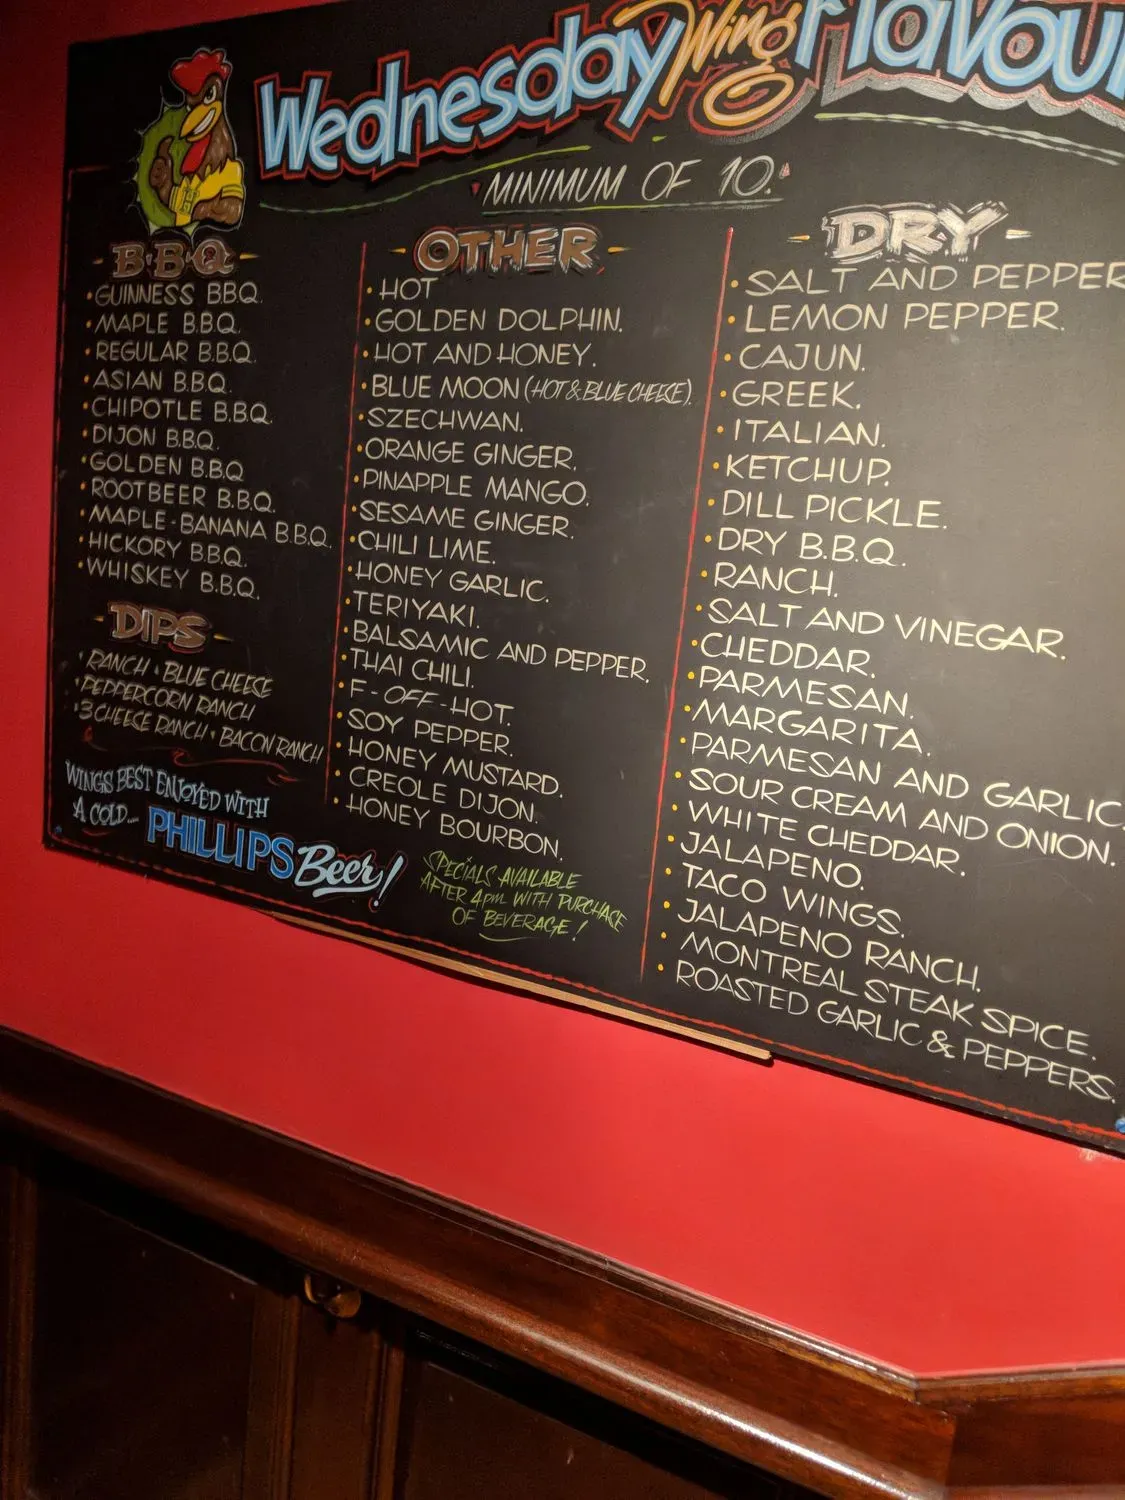 Wednesday Wing Flavour
MINIMUM OF 10.
B.B.Q
• GUINNESS B.B.Q.
• MAPLE B.B.Q.
• REGULAR B.B.Q.
• ASIAN B.B.Q.
• CHIPOTLE B.B.Q.
• DIJON B.B.Q.
• GOLDEN B.B.Q
• ROOTBEER B.B.Q.
• MAPLE-BANANA B.B.Q.
• HICKORY B.B.Q.
• WHISKEY B.B.Q.
DIPS
• RANCH • BLUE CHEESE
• PEPPERCORN RANCH
• 3 CHEESE RANCH • BACON RANCH
WINGS BEST ENJOYED WITH
A COLD.... PHILLIPS Beer!
OTHER
• HOT
• GOLDEN DOLPHIN.
• HOT AND HONEY.
• BLUE MOON (HOT & BLUE CHEESE).
• SZECHWAN.
• ORANGE GINGER.
• PINAPPLE MANGO.
• SESAME GINGER.
• CHILI LIME.
• HONEY GARLIC.
• TERIYAKI.
• BALSAMIC AND PEPPER.
• THAI CHILI.
• F-OFF-HOT.
• SOY PEPPER.
• HONEY MUSTARD.
• CREOLE DIJON.
• HONEY BOURBON.
SPECIALS AVAILABLE
AFTER 4PM WITH PURCHASE
OF BEVERAGE!
DRY
• SALT AND PEPPER
• LEMON PEPPER.
• CAJUN.
• GREEK.
• ITALIAN.
• KETCHUP.
• DILL PICKLE.
• DRY B.B.Q.
• RANCH.
• SALT AND VINEGAR.
• CHEDDAR.
• PARMESAN.
• MARGARITA.
• PARMESAN AND GARLIC.
• SOUR CREAM AND ONION.
• WHITE CHEDDAR.
• JALAPENO.
• TACO WINGS.
• JALAPENO RANCH.
• MONTREAL STEAK SPICE.
• ROASTED GARLIC & PEPPERS.